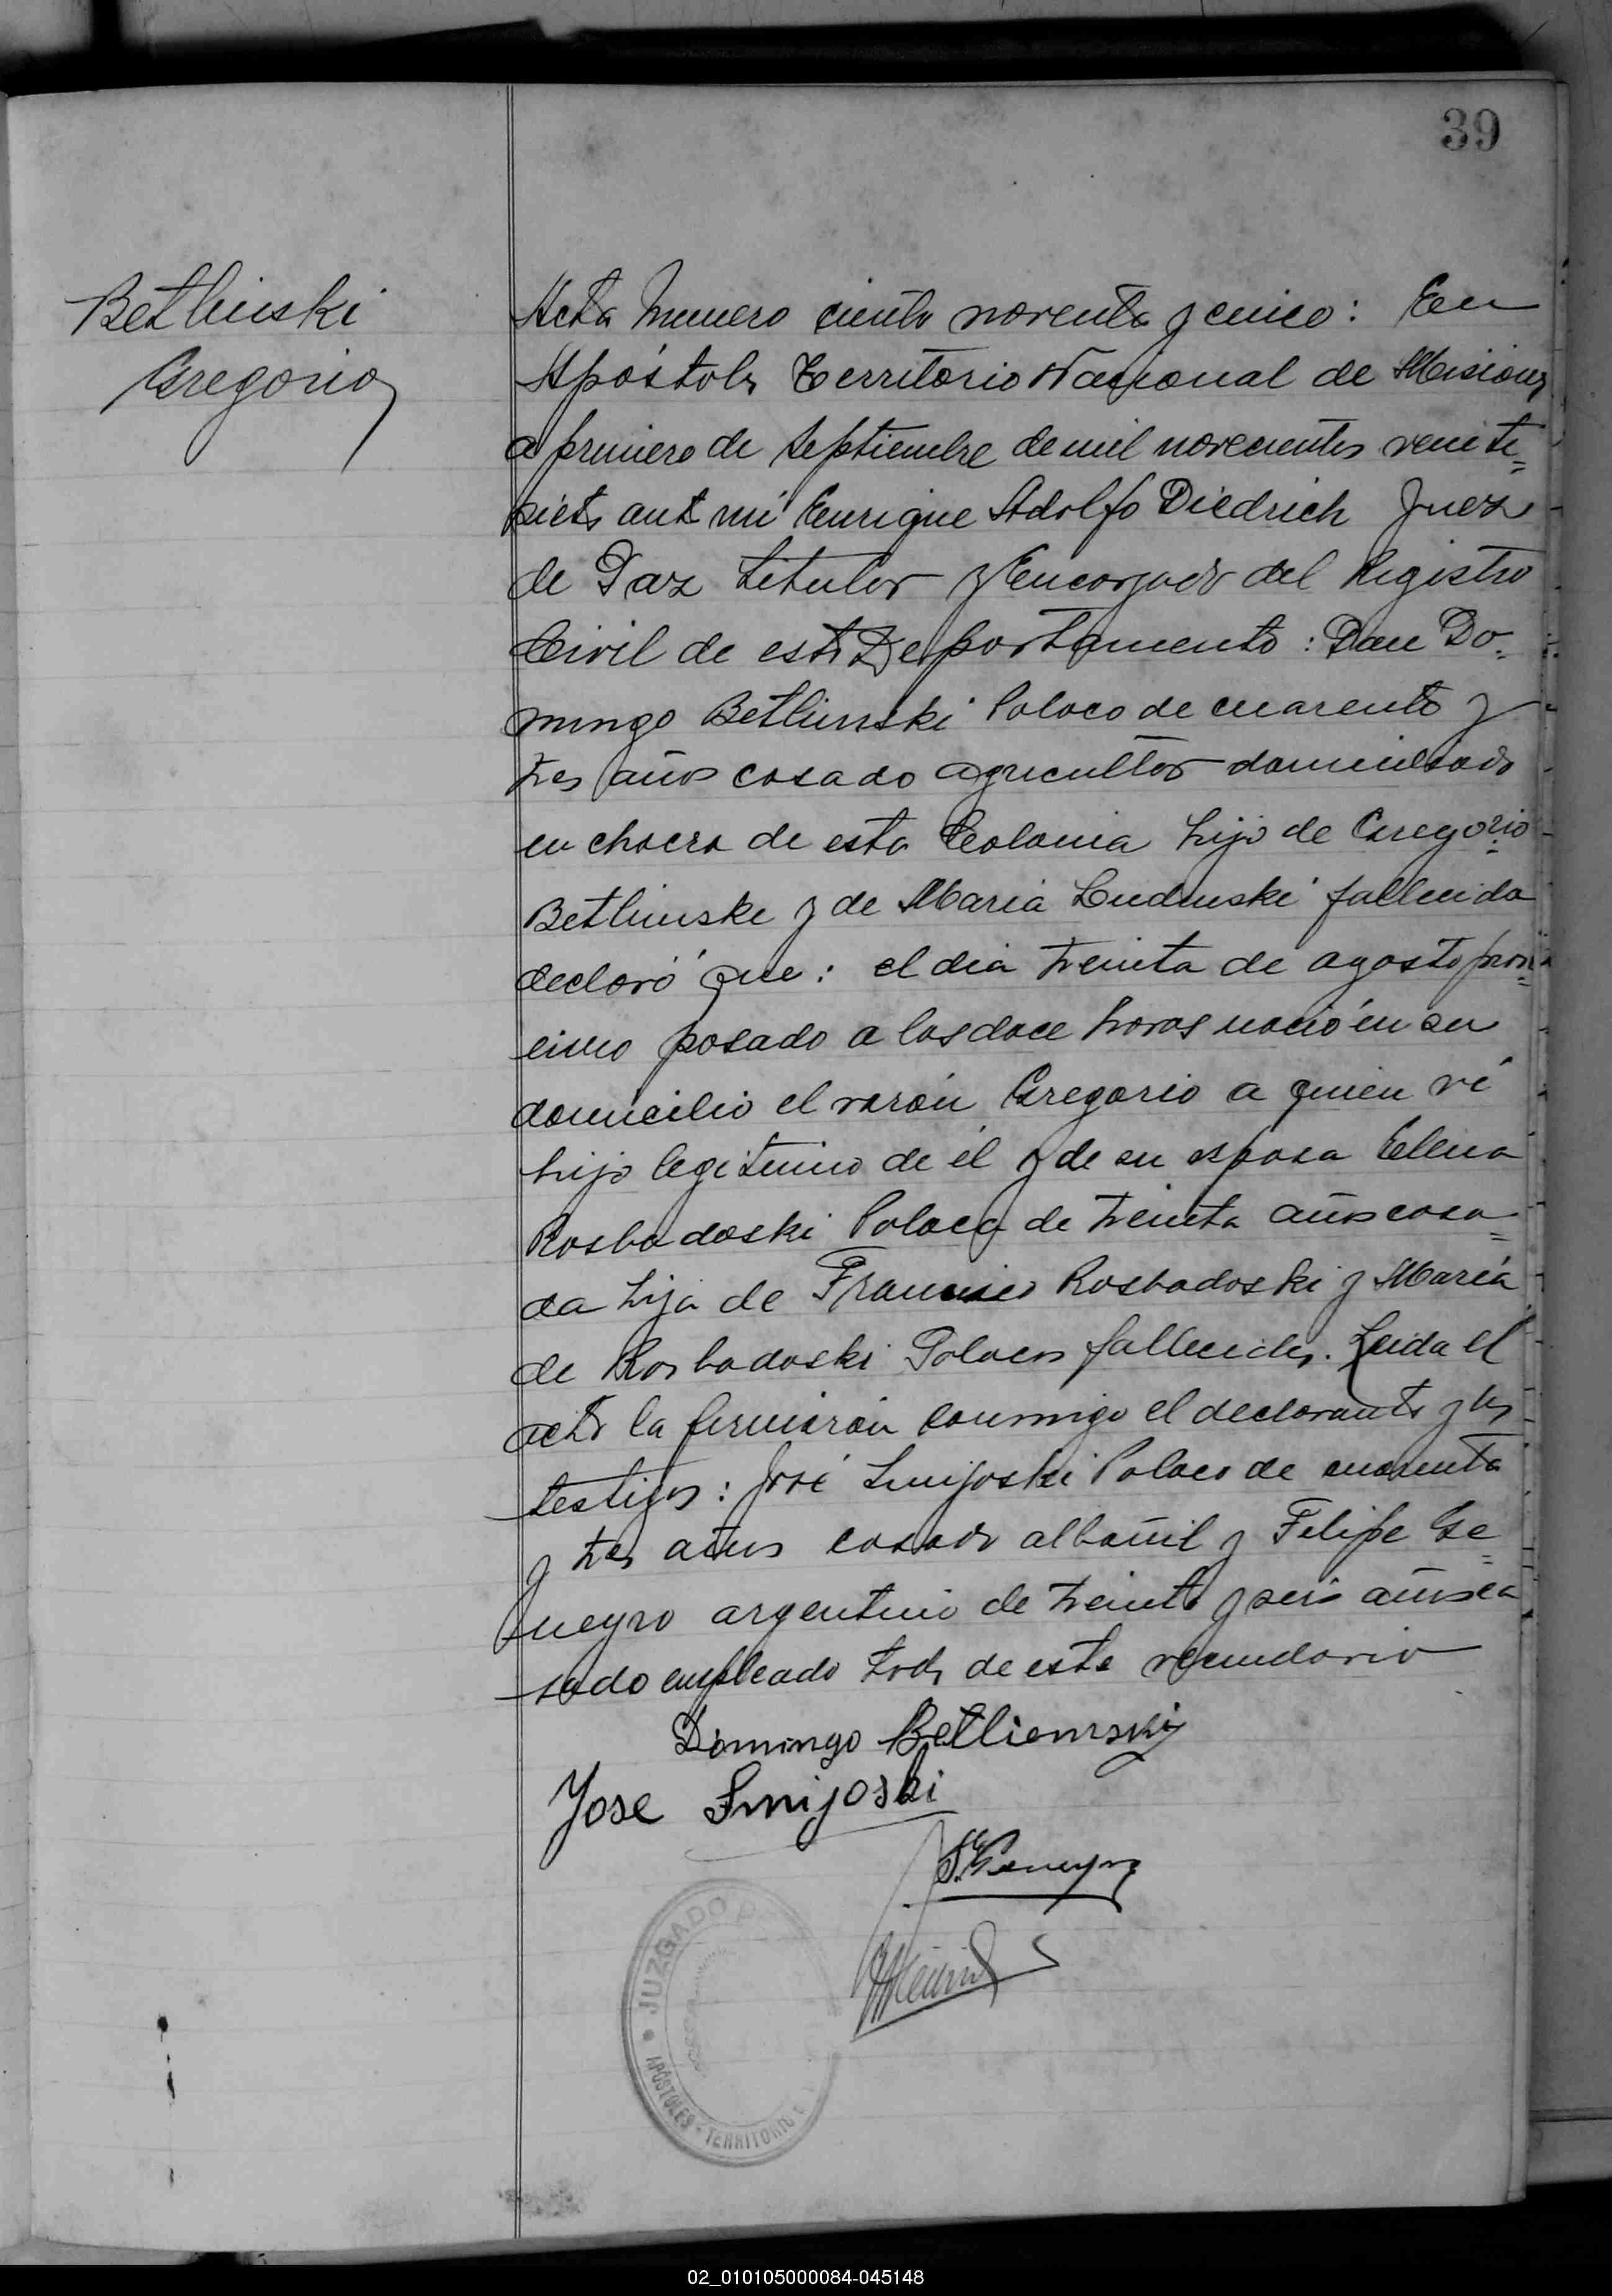 39
Betlinski
Gregorio
Acta Numero ciento noventa y cinco: En
Apóstoles Territorio Nacional de Misiones
a primero de Septiembre de mil novecientos veinte=
siete ante mi Enrique Adolfo Diedrich Juez
de Paz titular y Encargado del Registro
Civil de este Departamento: Don Do=
mingo Betlinski Polaco de cuarenta y
tres años casado agricultor domiciliado
en chacra de esta Colonia hijo de Gregorio
Betlinske y de Maria fallecida
declaró que: el dia treinta de agosto pro=
cimo pasado a las doce horas nació en su
domicilio el varón Gregorio a quien vi
hijo legitimo de él y de su esposa Elena
Rosbodoski Polaca de treinta años casa=
da hija de Francisco Rosbadoski y María
de Rosbadoski Polacos fallecidos. Leida el
acta la firmaron conmigo el declarante y los
testigos: José Smijoski Polaco de cuarenta
y tres años casado albañil y Felipe Ge=
neyro argentino de treinta y seis años ca
sado empleado todos de este vecindario
Domingo Betliemski
Jose Smijoski
F. Geneyro
JUZGADO D
APÓSTOLES - TERRITORIO
02_010105000084-045148